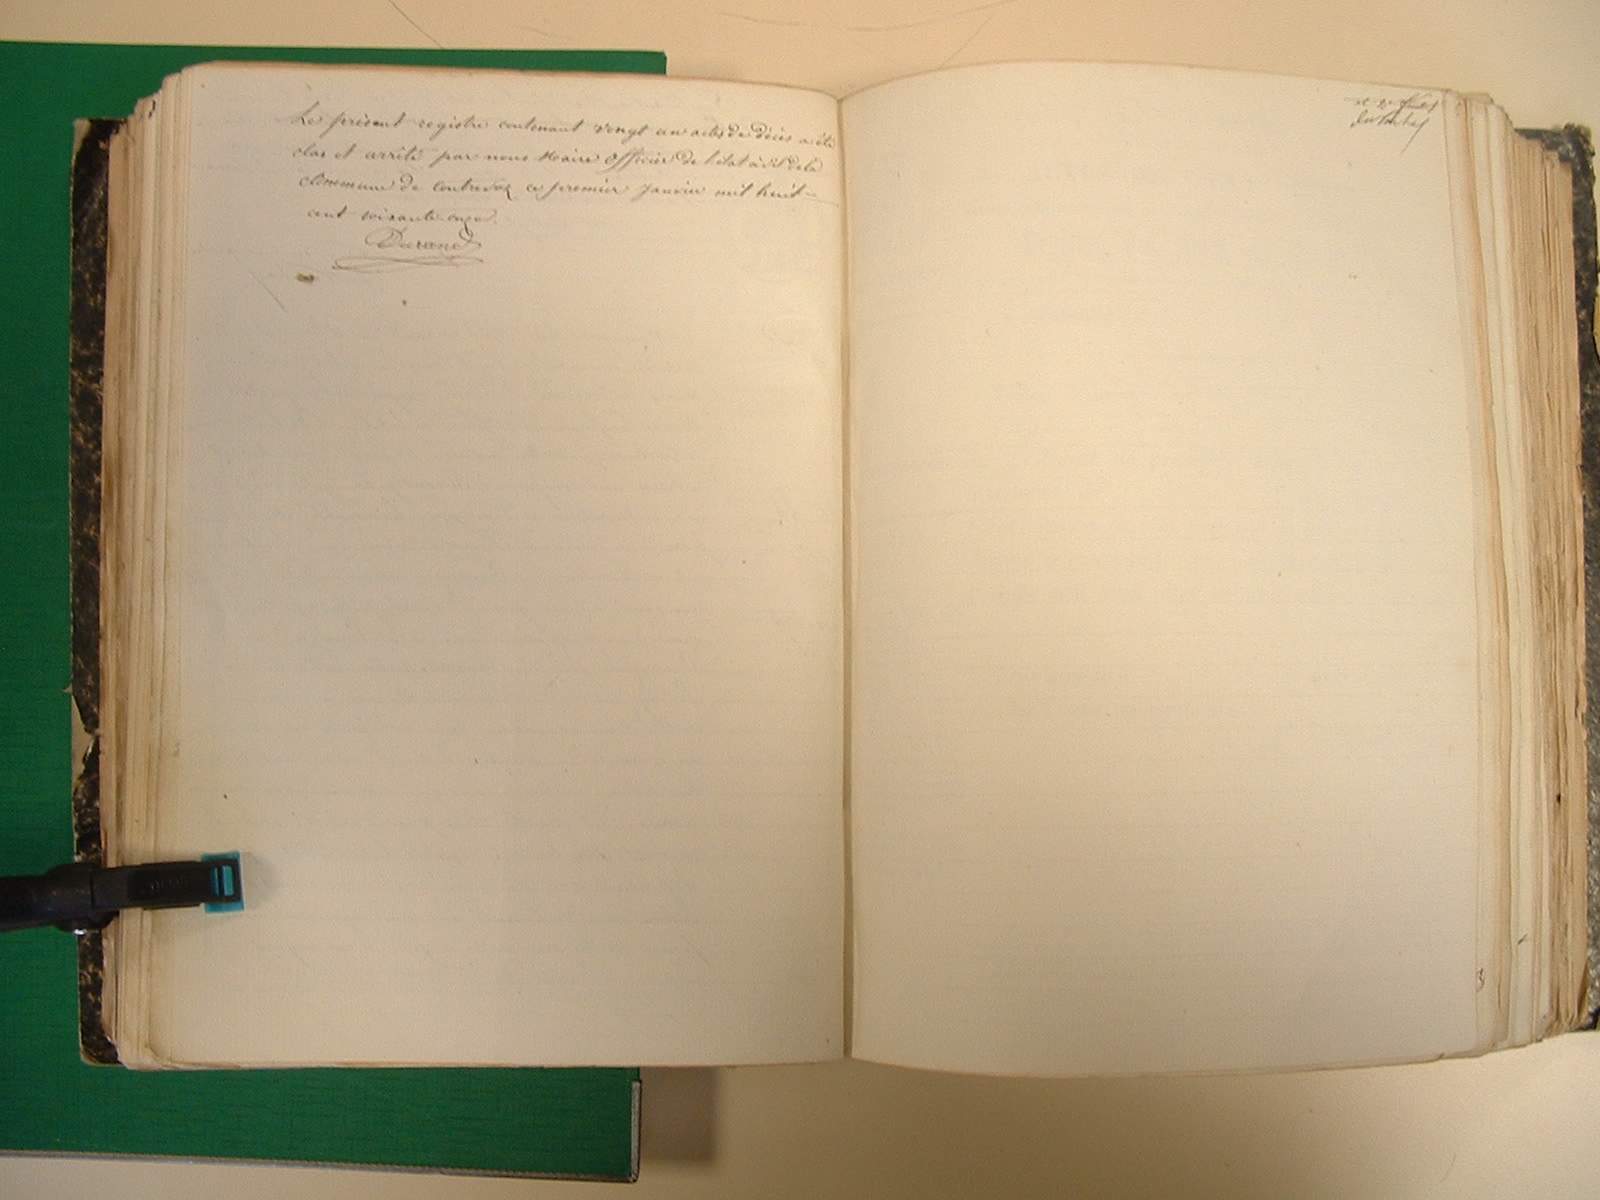 Le présent registre contenant vingt un actes de décès a été
clos et arrêté par nous Maire Officier de l'état civil de la
Commune de Contrevoz ce premier Janvier mil huit-
cent soixante onze.
Durand
et